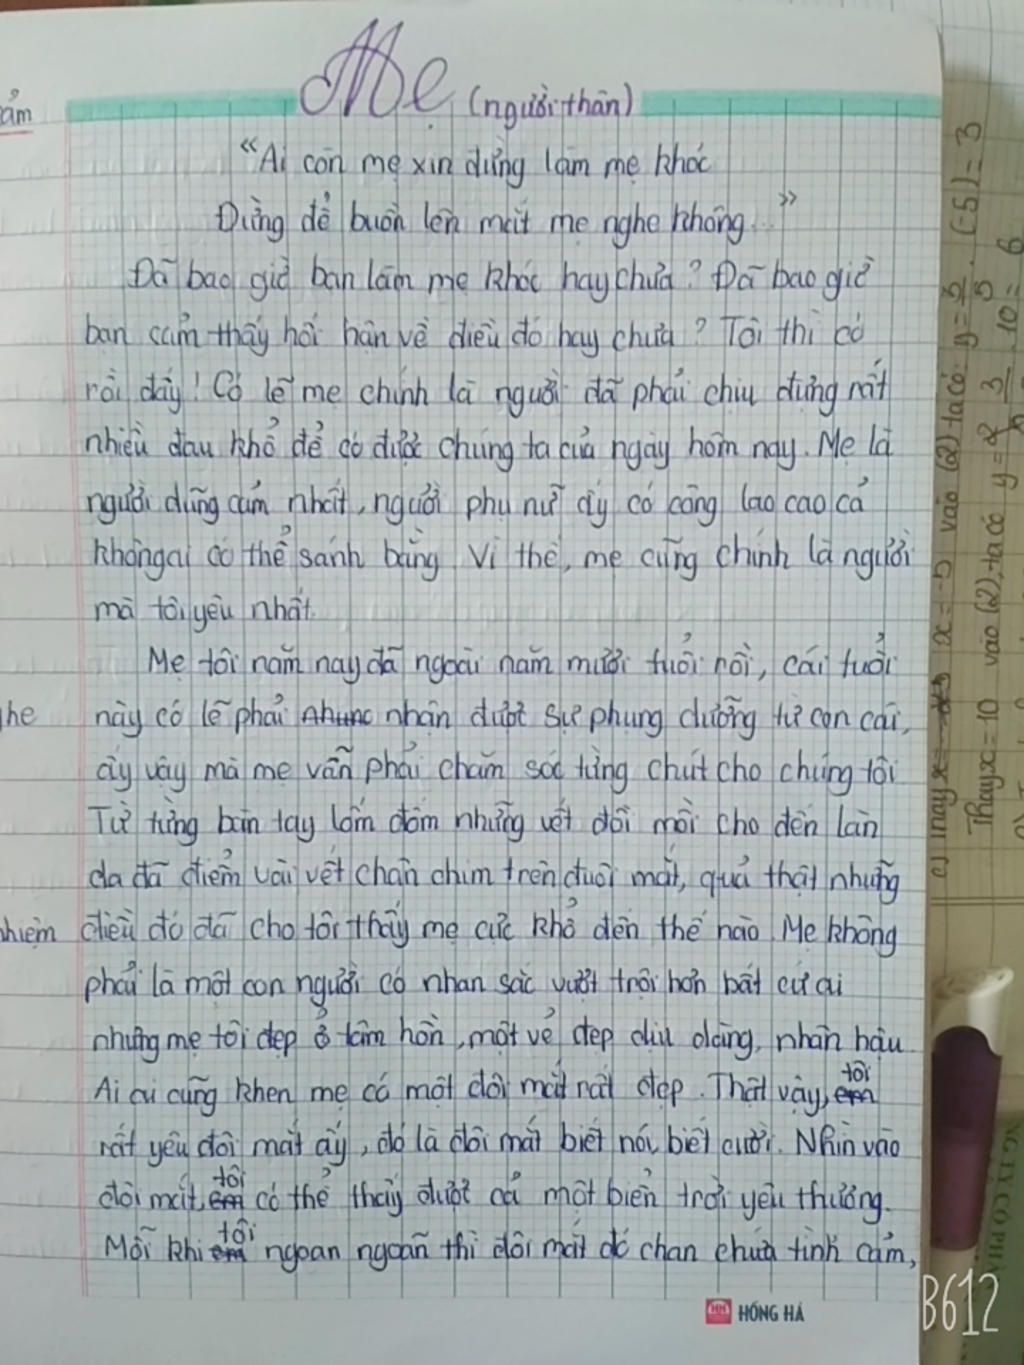 Mẹ (người thân)
"Ai còn mẹ xin đừng làm mẹ khóc
Đừng để buồn lên mắt mẹ nghe không..."
Đã bao giờ bạn làm mẹ khóc hay chưa? Đã bao giờ
bạn cảm thấy hối hận về điều đó hay chưa? Tôi thì có
rồi đấy! Có lẽ mẹ chính là người đã phải chịu đựng rất
nhiều đau khổ để có được chúng ta của ngày hôm nay. Mẹ là
người dũng cảm nhất, người phụ nữ ấy có công lao cao cả
không ai có thể sánh bằng. Vì thế, mẹ cũng chính là người
mà tôi yêu nhất.
Mẹ tôi năm nay đã ngoài năm mươi tuổi rồi, cái tuổi
này có lẽ phải nhận được sự phụng dưỡng từ con cái,
ấy vậy mà mẹ vẫn phải chăm sóc từng chút cho chúng tôi
Từ từng bàn tay lốm đốm những vết đồi mồi cho đến làn
da đã điểm vài vết chân chim trên đuôi mắt, quả thật những
điều đó đã cho tôi thấy mẹ cực khổ đến thế nào. Mẹ không
phải là một con người có nhan sắc vượt trội hơn bất cứ ai
nhưng mẹ tôi đẹp ở tâm hồn, một vẻ đẹp dịu dàng, nhân hậu
Ai ai cũng khen mẹ có một đôi mắt rất đẹp. Thật vậy, tôi
rất yêu đôi mắt ấy, đó là đôi mắt biết nói, biết cười. Nhìn vào
đôi mắt, tôi có thể thấy được cả một biển trời yêu thương.
Mỗi khi tôi ngoan ngoãn thì đôi mắt đó chan chứa tình cảm,
HỒNG HÀ
B612
ảm
ghe
nhiệm
x = -5 vào (2) ta có: y = 3/5 . (-5) = 3
Thay x = 10 vào (2), ta có y =